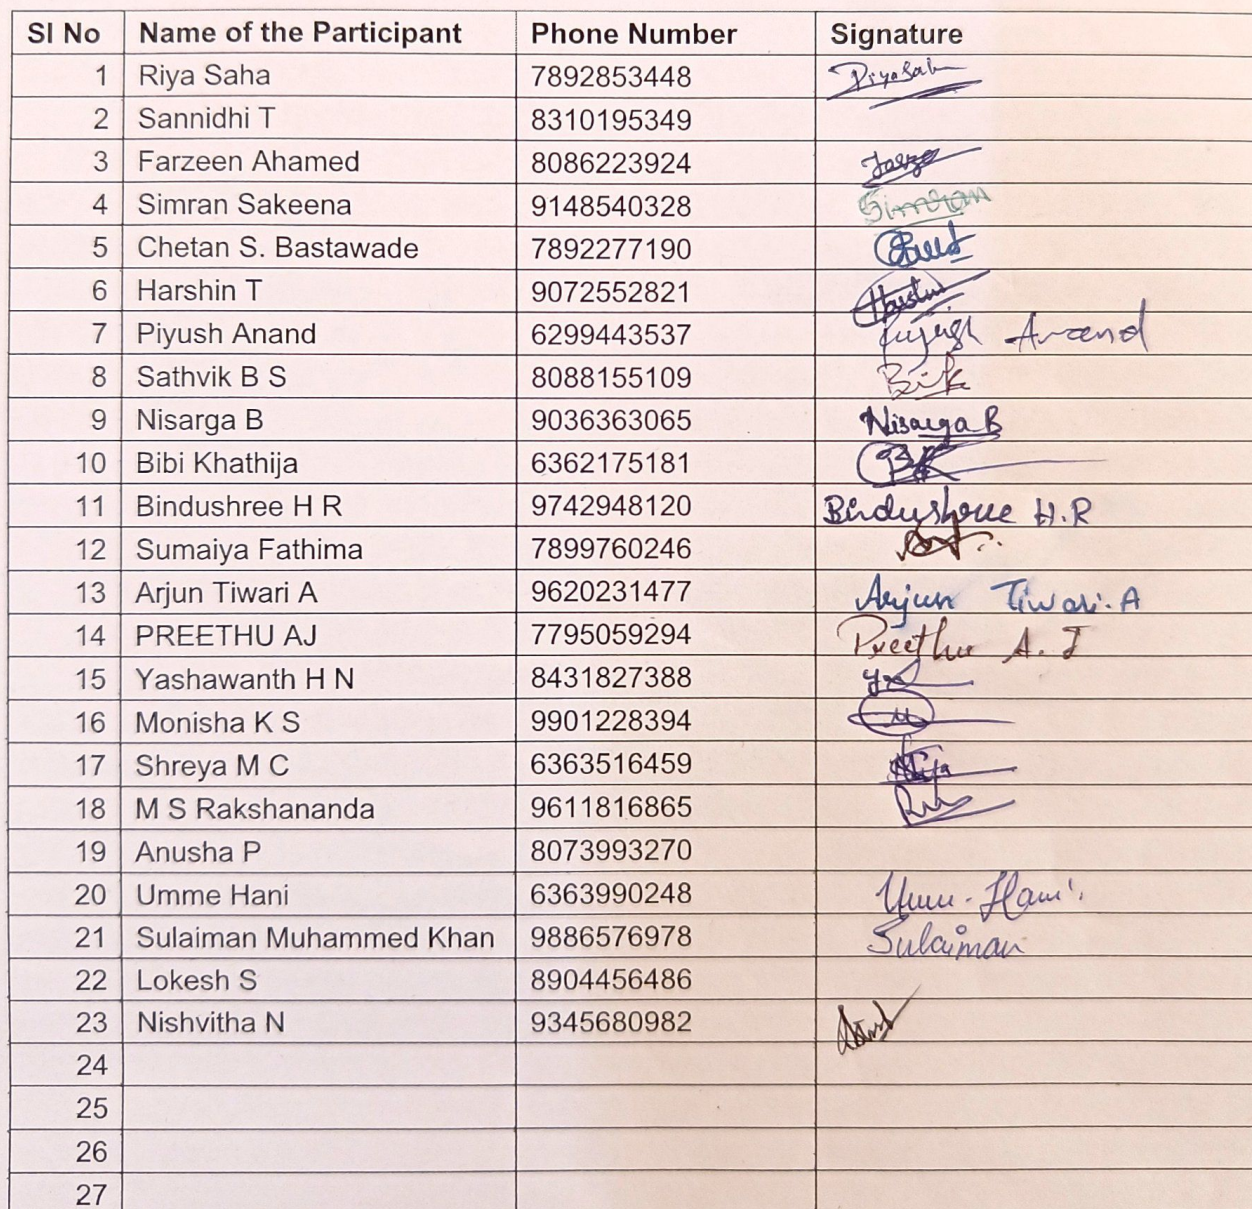 Sl No Name of the Participant Phone Number Signature
1 Riya Saha 7892853448 Riya Sah
2 Sannidhi T 8310195349
3 Farzeen Ahamed 8086223924
4 Simran Sakeena 9148540328 Simran
5 Chetan S. Bastawade 7892277190
6 Harshin T 9072552821
7 Piyush Anand 6299443537 Piyush Anand
8 Sathvik B S 8088155109
9 Nisarga B 9036363065 Nisarga B
10 Bibi Khathija 6362175181
11 Bindushree H R 9742948120 Bindushree H.R
12 Sumaiya Fathima 7899760246
13 Arjun Tiwari A 9620231477 Arjun Tiwari.A
14 PREETHU AJ 7795059294 Preethu A.J
15 Yashawanth H N 8431827388
16 Monisha K S 9901228394
17 Shreya M C 6363516459
18 M S Rakshananda 9611816865
19 Anusha P 8073993270
20 Umme Hani 6363990248 Hani
21 Sulaiman Muhammed Khan 9886576978 Sulaiman
22 Lokesh S 8904456486
23 Nishvitha N 9345680982
24
25
26
27